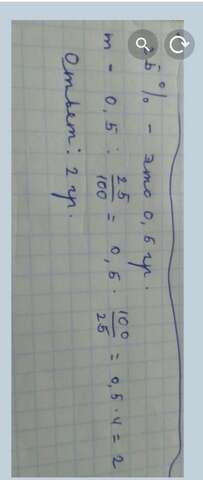 25% - это 0,5 гр.
m = 0,5 : 25/100 = 0,5 · 100/25 = 0,5 · 4 = 2
Ответ: 2 гр.